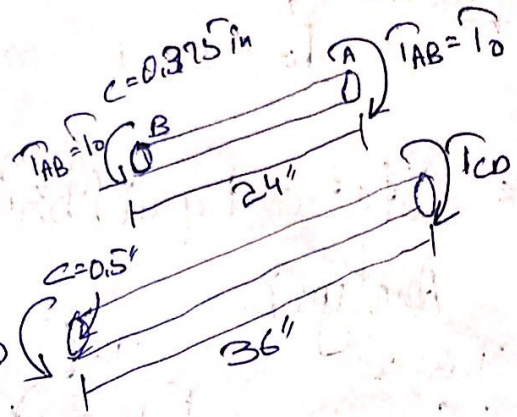 C=0.375 in
A
T_AB = T_0
T_AB = T_0
B
24"
T_CD
C=0.5"
36"